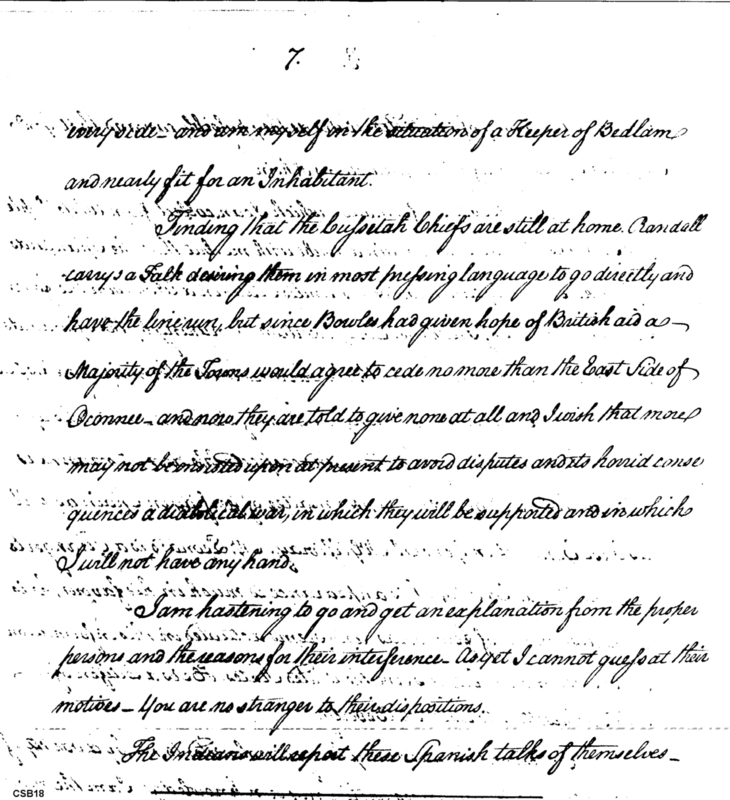 7.
every side - and am myself in the situation of a Keeper of Bedlam
and nearly fit for an Inhabitant.
Finding that the Cussetah Chiefs are still at home. Randall
carrys a Talk desiring them in most pressing language to go directly and
have the line run, but since Bowles had given hope of British aid a -
Majority of the Towns would agree to cede no more than the East Side of
Oconnee - and now they are told to give none at all and I wish that more
may not be insisted upon at present to avoid disputes and its horrid conse
quences a diabolical war, in which they will be supported and in which
I will not have any hand.
I am hastening to go and get an explanation from the proper
persons and the reasons for their interference - As yet I cannot guess at their
motives - You are no stranger to their dispositions.
The Indians will report these Spanish talks of themselves -
CSB18